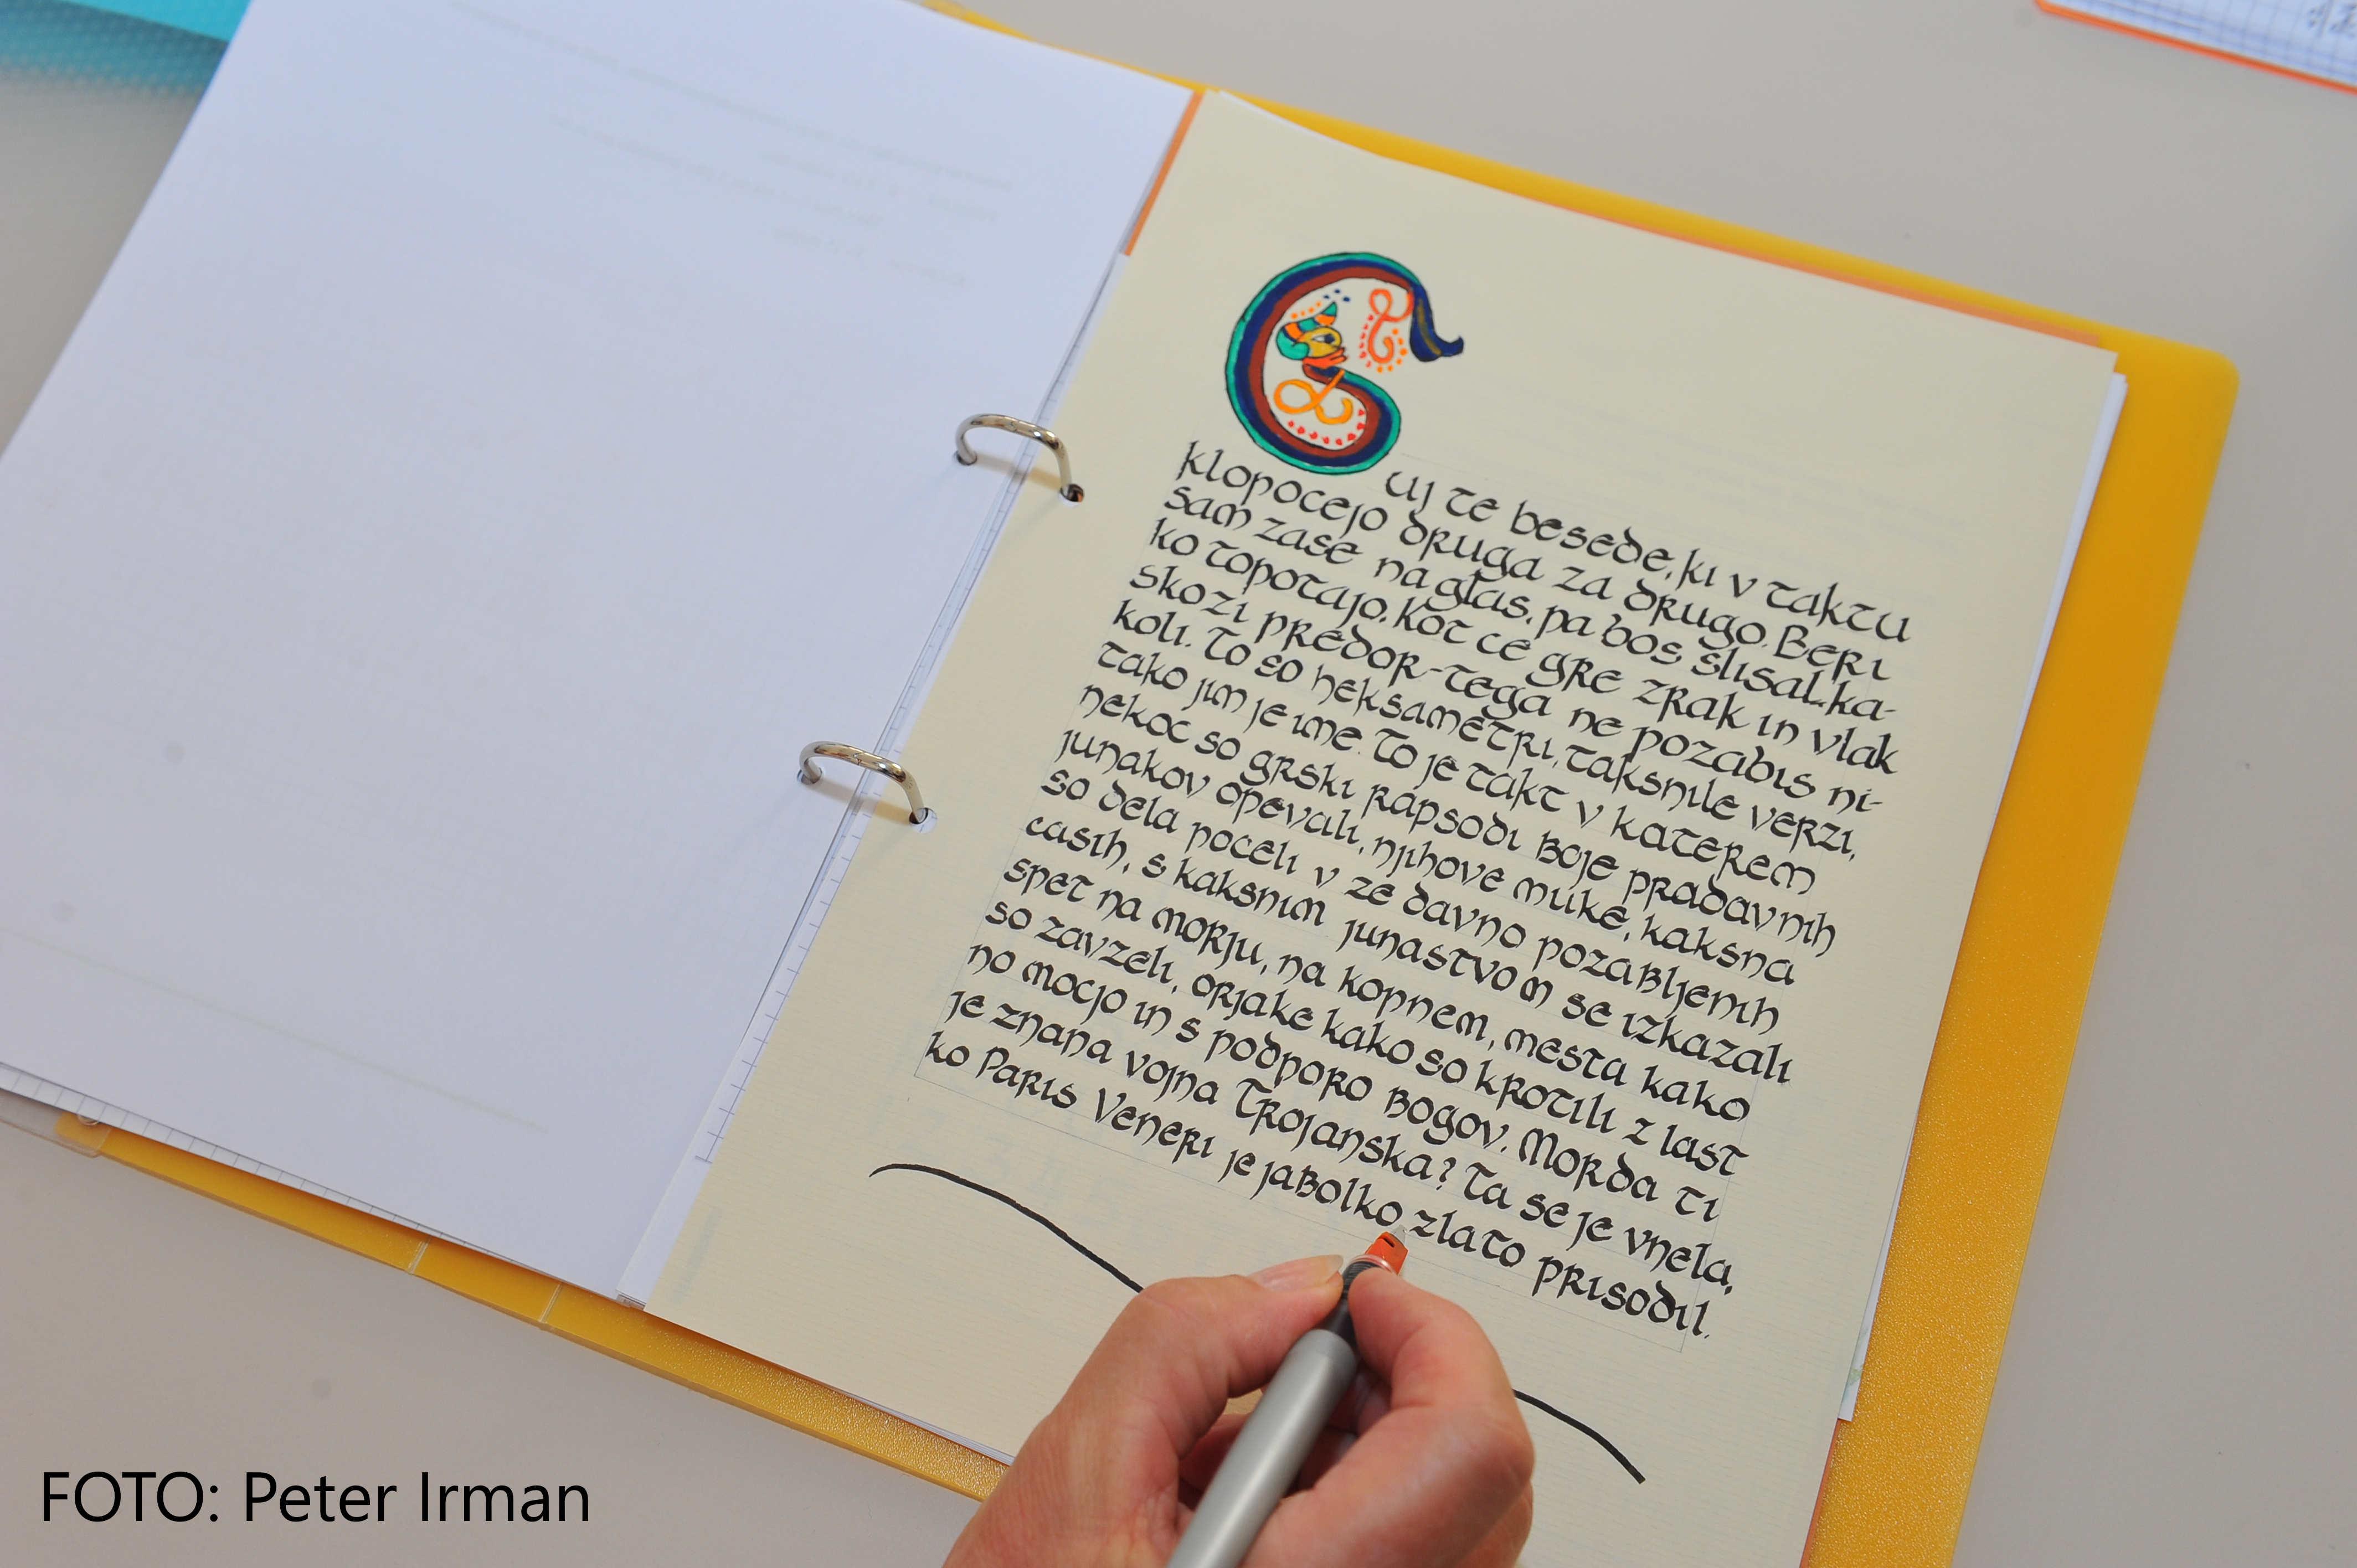 Cuj te besede, ki v taktu
klopocejo druga za drugo. Beri
sam zase na glas, pa bos slisal, ka-
ko topotajo. Kot ce gre zrak in vlak
skozi predor-tega ne pozabis ni-
koli. To so heksametri, taksnile verzi,
tako jim je ime. To je takt v katerem
nekoc so grski rapsodi boje pradavnih
junakov opevali, njihove muke, kaksna
so dela poceli v ze davno pozabljenih
casih, s kaksnim junastvom se izkazali
spet na morju, na kopnem, mesta kako
so zavzeli, orjake kako so krotili z last
no mocjo in s podporo bogov. Morda ti
je znana vojna Trojanska? Ta se je vnela,
ko Paris Veneri je jabolko zlato prisodil.
FOTO: Peter Irman